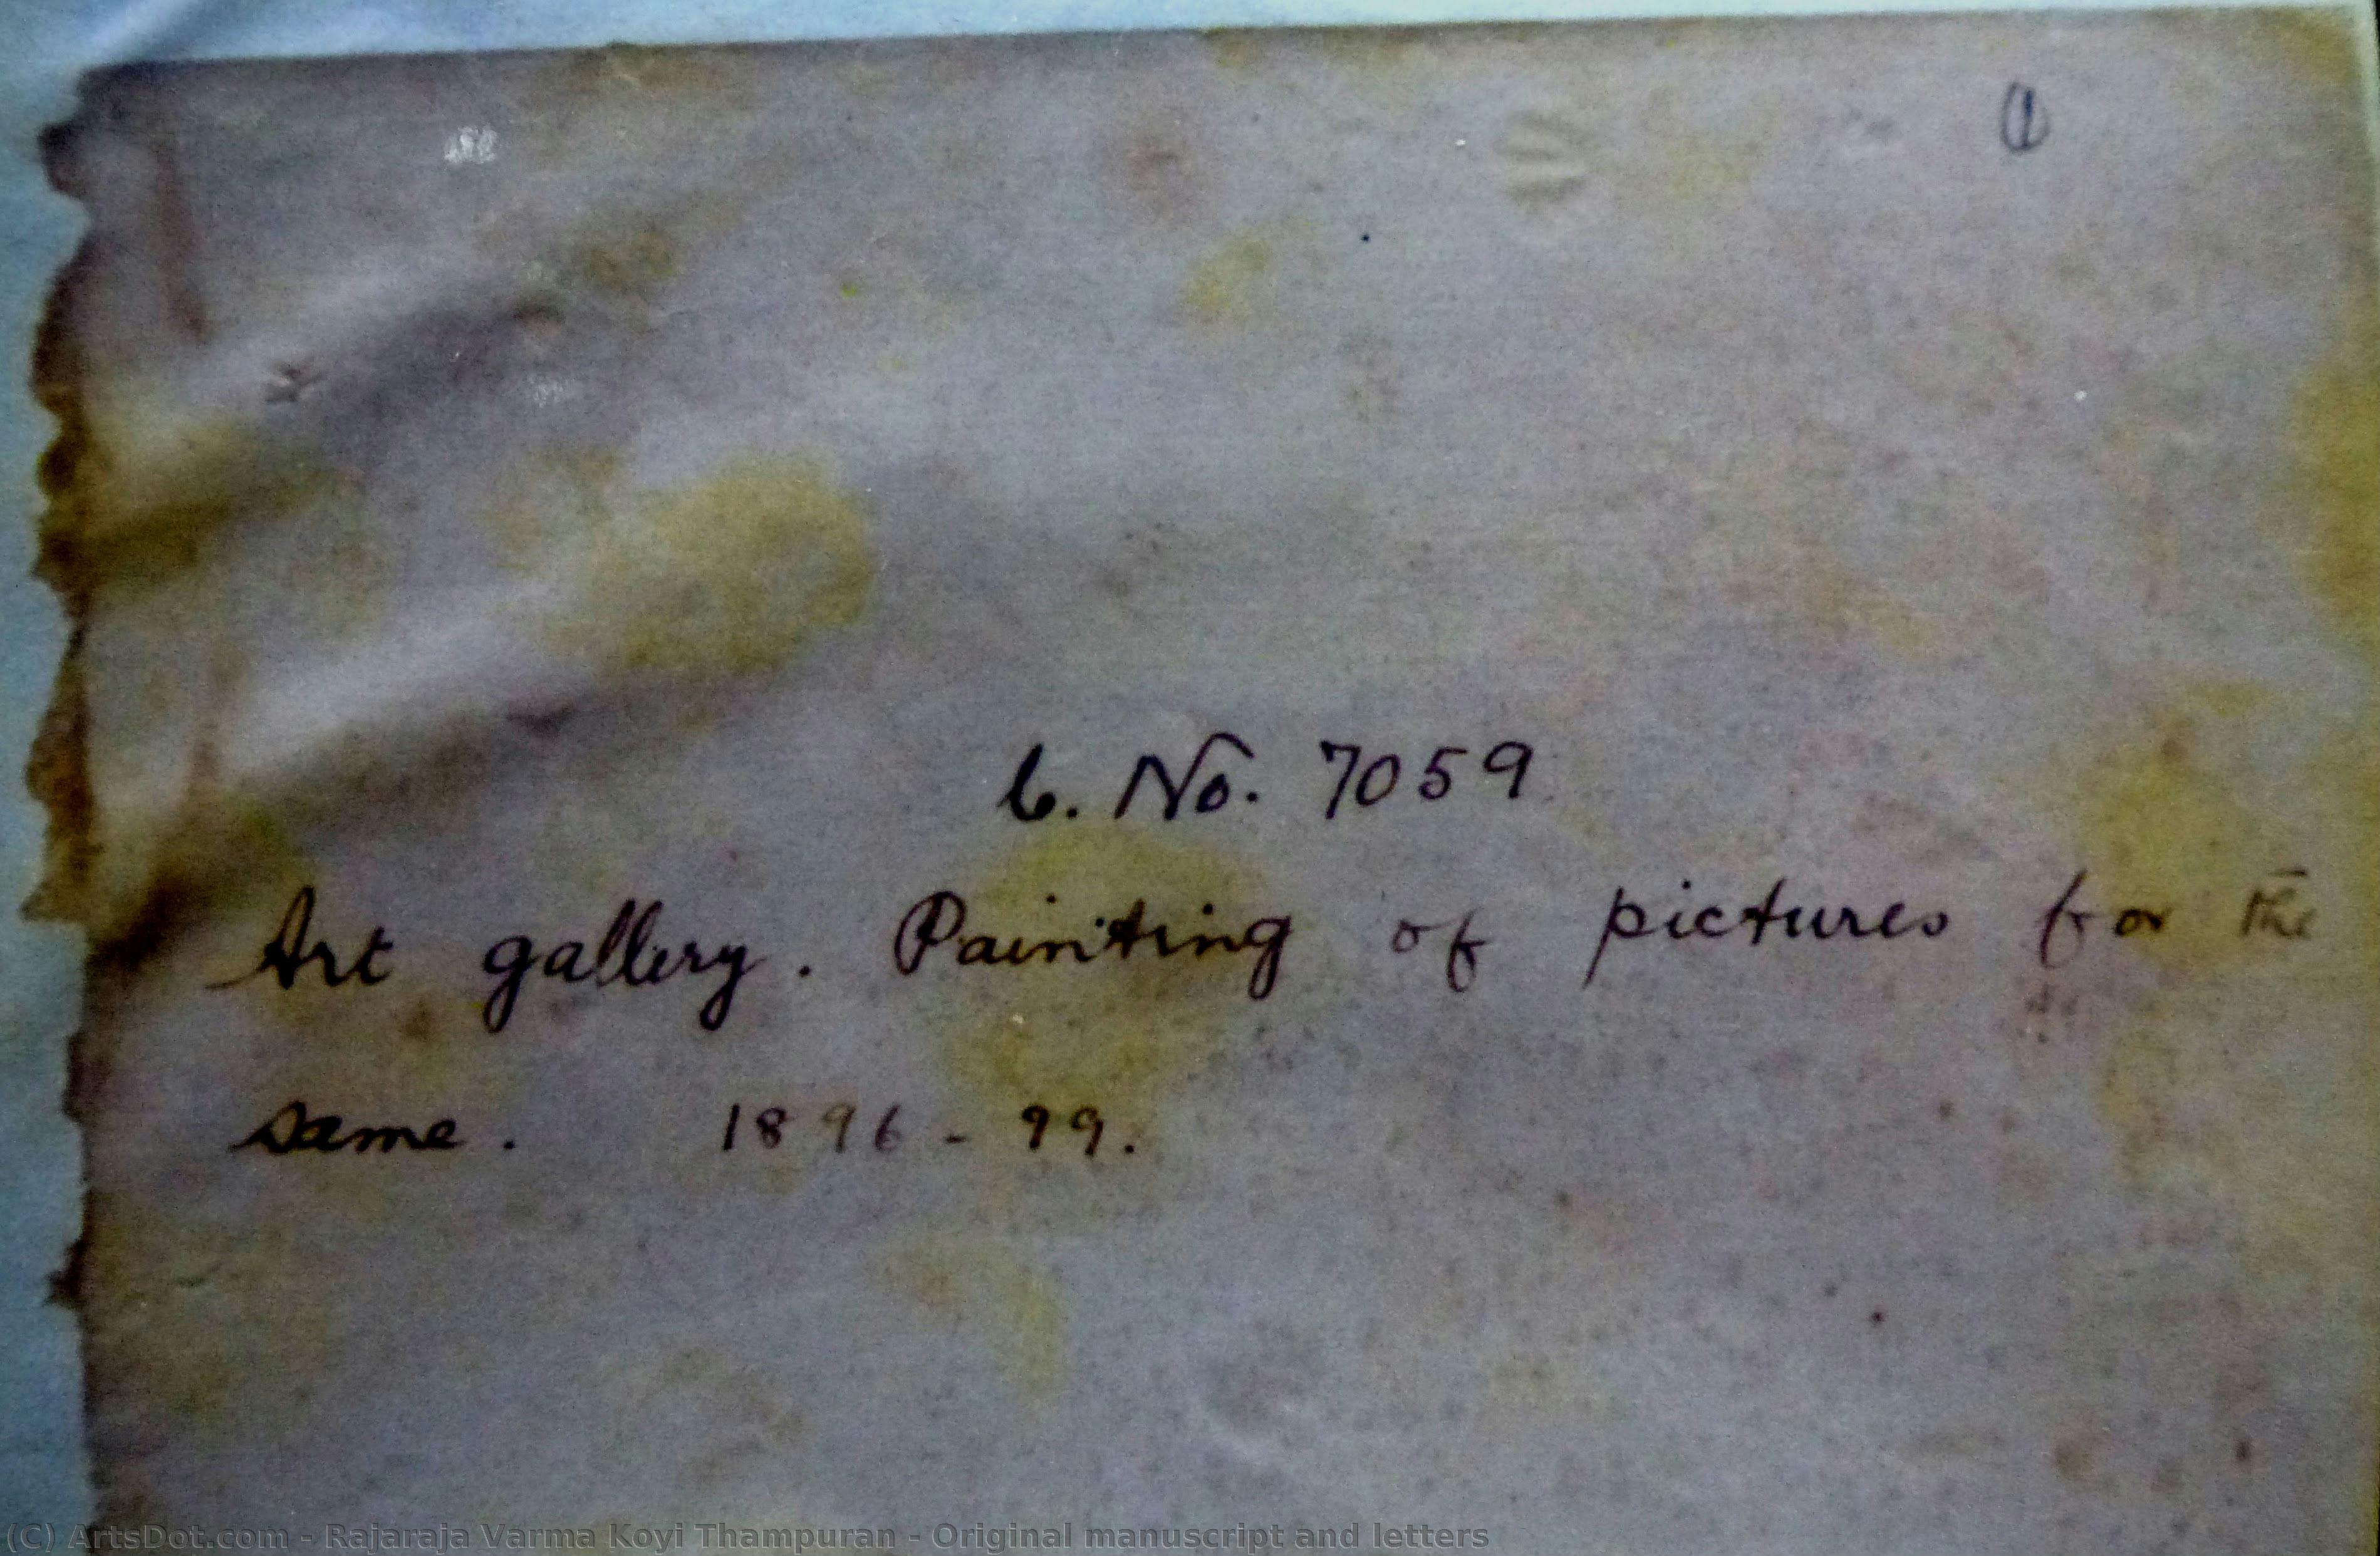 ①
C. No. 7059
Art gallery. Painting of pictures for the
same. 1896 - 99.
(C) ArtsDot.com - Rajaraja Varma Koyi Thampuran - Original manuscript and letters